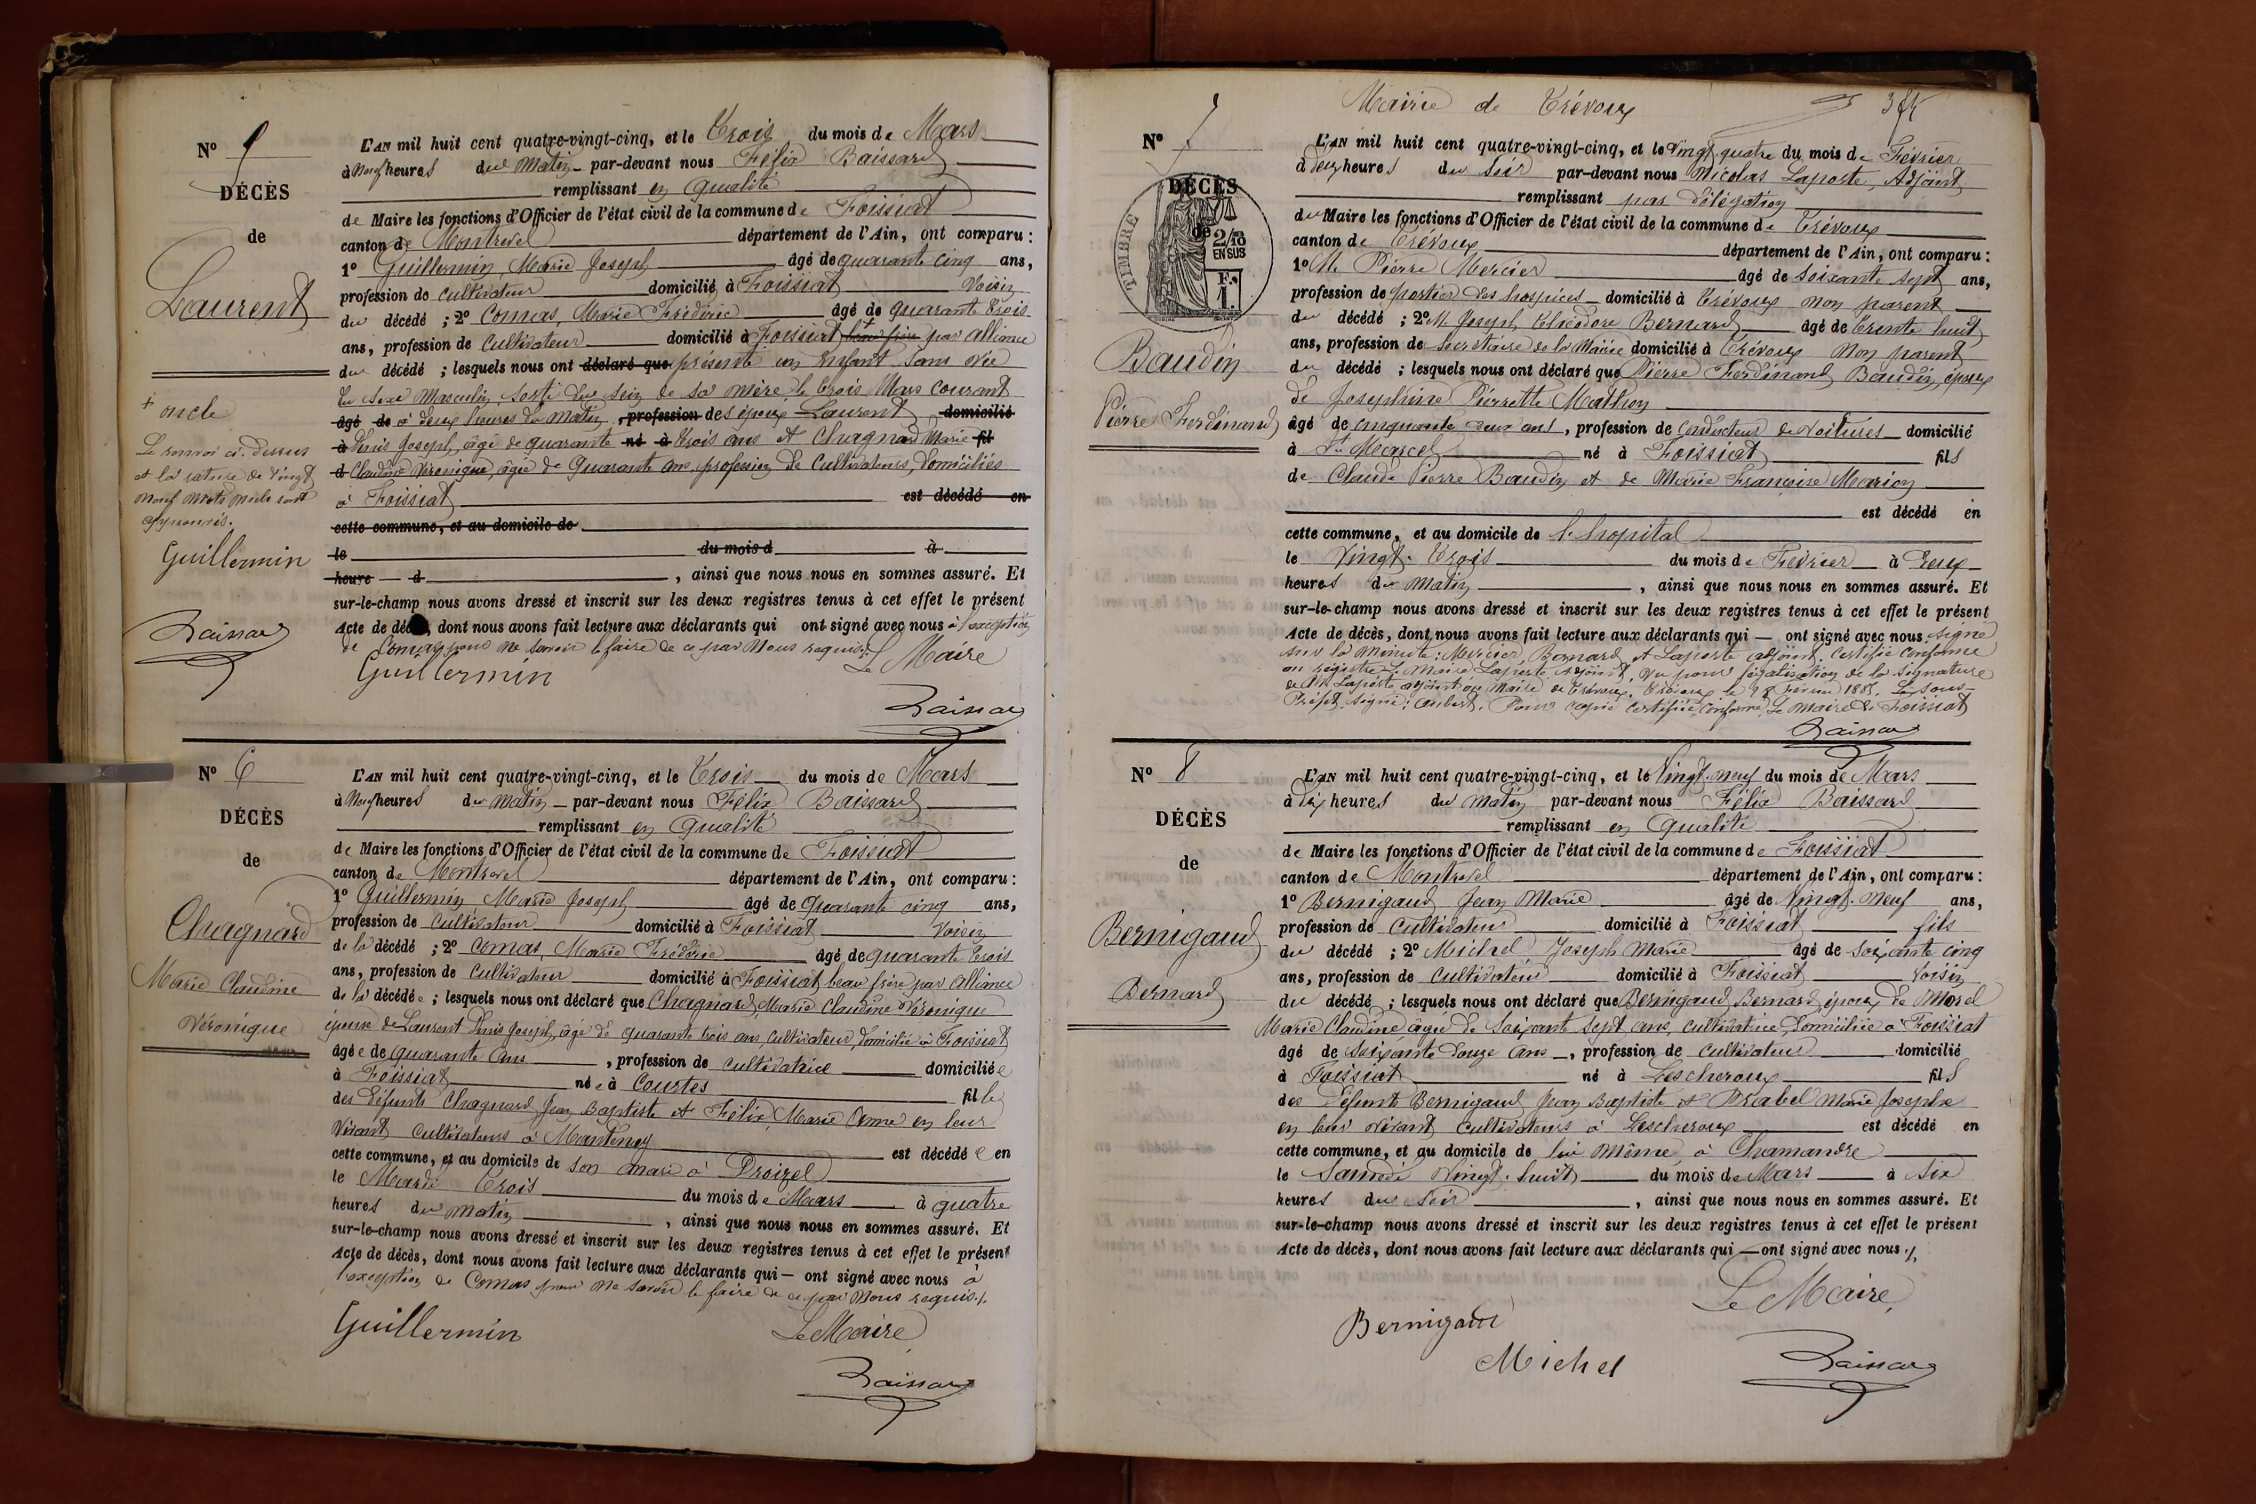 Nº 5
DÉCÈS
de
Laurent
+ oncle
Le renvoi ci-dessus
et la rature de vingt
neuf mots nuls sont
approuvés.
Guillermin
Baissard
L'AN mil huit cent quatre-vingt-cinq, et le Trois du mois de Mars
à Neuf heures du Matin par-devant nous Félix Baissard
remplissant en qualité
de Maire les fonctions d'Officier de l'état civil de la commune de Foissiat
canton de Montrevel département de l'Ain, ont comparu :
1º Guillermin, Marie Joseph âgé de quarante cinq ans,
profession de cultivateur domicilié à Foissiat Voisin
du décédé ; 2º Comas, Marie Frédéric âgé de quarante trois
ans, profession de cultivateur domicilié à Foissiat + beau frère par alliance
du décédé ; lesquels nous ont déclaré que présenté un Enfant Sans vie
du Sexe Masculin, sorti du sein de sa mère, le trois Mars courant
âgé de à deux heures du matin, profession des époux Laurent domicilié
à Denis Joseph, âgé de quarante né à trois ans et Chagnard Marie fil
d Claudine Véronique, âgée de Quarante ans profession de Cultivateurs, Domiciliés
à Foissiat est décédé en
cette commune, et au domicile de
le du mois d à
heure d , ainsi que nous nous en sommes assuré. Et
sur-le-champ nous avons dressé et inscrit sur les deux registres tenus à cet effet le présent
Acte de décès, dont nous avons fait lecture aux déclarants qui ont signé avec nous à l'exception
de Comas pour ne savoir le faire de ce par Nous requis.
Le Maire
Guillermin
Baissard
Nº 6
DÉCÈS
de
Chagnard
Marie Claudine
Véronique
L'AN mil huit cent quatre-vingt-cinq, et le Trois du mois de Mars
à Neuf heures du Matin par-devant nous Félix Baissard
remplissant en Qualité
de Maire les fonctions d'Officier de l'état civil de la commune de Foissiat
canton de Montrevel département de l'Ain, ont comparu :
1º Guillermin, Marie Joseph âgé de Quarante cinq ans,
profession de cultivateur domicilié à Foissiat Voisin
de la décédé ; 2º Comas, Marie Frédéric âgé de quarante trois
ans, profession de cultivateur domicilié à Foissiat, beau frère par alliance
de la décédée ; lesquels nous ont déclaré que Chagnard, Marie Claudine Véronique
épouse de Laurent Denis Joseph, âgé de quarante trois ans, cultivateur, domicilié à Foissiat
âgée de quarante ans , profession de cultivatrice domiciliée
à Foissiat née à Courtes fille
des défunts Chagnard Jean Baptiste et Félix, Marie Anne en leur
Vivant cultivateurs à Mantenay est décédée en
cette commune, et au domicile de son mari à Proizel
le Mardi Trois du mois de Mars à quatre
heures du matin , ainsi que nous nous en sommes assuré. Et
sur-le-champ nous avons dressé et inscrit sur les deux registres tenus à cet effet le présent
Acte de décès, dont nous avons fait lecture aux déclarants qui — ont signé avec nous à
l'exception de Comas pour ne savoir le faire de ce par Nous requis./.
Guillermin
Le Maire
Baissard
Mairie de Trévoux
Nº 7
DÉCÈS
de
TIMBRE
2/10
EN SUS
F.
1.
Baudin
Pierre Ferdinand
L'AN mil huit cent quatre-vingt-cinq, et le Vingt quatre du mois de Février
à deux heures du Soir par-devant nous Nicolas Laporte, Adjoint
remplissant par délégation
du Maire les fonctions d'Officier de l'état civil de la commune de Trévoux
canton de Trévoux département de l'Ain, ont comparu :
1º M. Pierre Mercier âgé de soixante sept ans,
profession de portier des hospices domicilié à Trévoux non parent
du décédé ; 2º M. Joseph Théodore Bernard âgé de trente huit
ans, profession de Secrétaire de la Mairie domicilié à Trévoux Non parent
du décédé ; lesquels nous ont déclaré que Pierre Ferdinand Baudin, époux
de Josephine Pierrette Mathon
âgé de cinquante deux ans, profession de Conducteur de Voitures domicilié
à St Marcel né à Foissiat fils
de Claude Pierre Baudin et de Marie Françoise Marion
est décédé en
cette commune, et au domicile de l'hopital
le Vingt-trois du mois de Février à Deux
heures du matin , ainsi que nous nous en sommes assuré. Et
sur-le-champ nous avons dressé et inscrit sur les deux registres tenus à cet effet le présent
Acte de décès, dont nous avons fait lecture aux déclarants qui — ont signé avec nous. Signé
sur la minute : Mercier, Bernard et Laporte adjoint. Certifié Conforme
au registre. Le Maire Laporte, Adjoint. Vu pour légalisation de la signature
de Mr Laporte adjoint au Maire de Trévoux. Trévoux le Février 1885. Le Sous-
Préfet signé : Aubert. Pour copie certifiée conforme, Le Maire de Foissiat
Baissard
Nº 8
DÉCÈS
de
Bernigaud
Bernard
L'AN mil huit cent quatre-vingt-cinq, et le Vingt-neuf du mois de Mars
à Dix heures du matin par-devant nous Félix Baissard
remplissant en Qualité
de Maire les fonctions d'Officier de l'état civil de la commune de Foissiat
canton de Montrevel département de l'Ain, ont comparu :
1º Bernigaud Jean Marie âgé de Vingt-Neuf ans,
profession de cultivateur domicilié à Foissiat fils
du décédé ; 2º Michel Joseph Marie âgé de soixante cinq
ans, profession de cultivateur domicilié à Foissiat Voisin
du décédé ; lesquels nous ont déclaré que Bernigaud Bernard, époux de Morel
Marie Claudine âgée de Soixante Sept ans, cultivatrice, Domiciliée à Foissiat
âgé de soixante douze ans , profession de cultivateur domicilié
à Foissiat né à Lescheroux fils
des défunts Bernigaud Jean Baptiste et Prabel Marie Josephe
en leur vivant cultivateurs à Lescheroux est décédé en
cette commune, et au domicile de lui même, à Chamandre
le Samedi Vingt-huit du mois de Mars à six
heures du Soir , ainsi que nous nous en sommes assuré. Et
sur-le-champ nous avons dressé et inscrit sur les deux registres tenus à cet effet le présent
Acte de décès, dont nous avons fait lecture aux déclarants qui — ont signé avec nous ./.
Le Maire
Bernigaud
Michel
Baissard